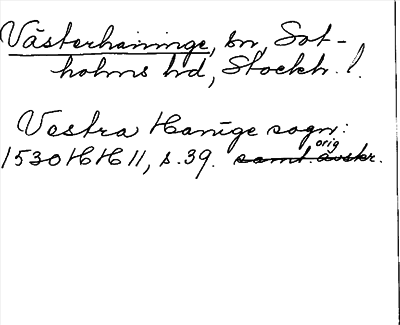 Västerhaninge, sn, Sot-
holms hd, Stockh. l.
Vestra Hanige sogn:
orig
1530 HH II, s. 39. samt. avskr.